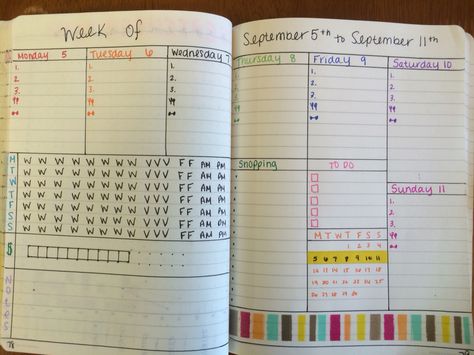 Week Of
Monday 5 Tuesday 6 Wednesday 7
1. 1. 1.
2. 2. 2.
3. 3. 3.
M W W W W W W W W V V V F F AM PM
T W W W W W W W W V V V F F AM PM
W W W W W W W W W V V V F F AM PM
T W W W W W W W W V V V F F AM PM
F W W W W W W W W V V V F F AM PM
S W W W W W W W W V V V F F AM PM
S W W W W W W W W V V V F F AM PM
$
Notes
78
September 5th to September 11th
Thursday 8 Friday 9 Saturday 10
1. 1. 1.
2. 2. 2.
3. 3. 3.
Shopping
TO DO
Sunday 11
1.
2.
3.
M T W T F S S
1 2 3 4
5 6 7 8 9 10 11
12 13 14 15 16 17 18
19 20 21 22 23 24 25
26 27 28 29 30